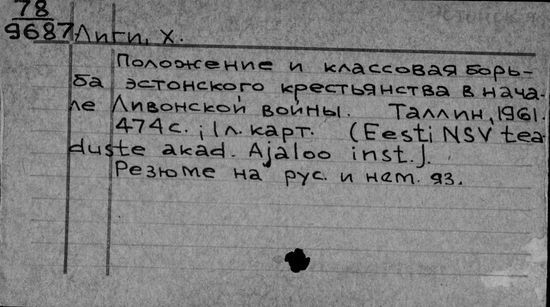 78
9687
Лиги, Х.
Положение и классовая борь-
ба эстонского крестьянства в нача-
ле Ливонской войны. Таллин, 1961.
474с.; 1л. карт. (Eesti NSV tea-
duste akad. Ajaloo inst.).
Резюме на рус. и нем. яз.